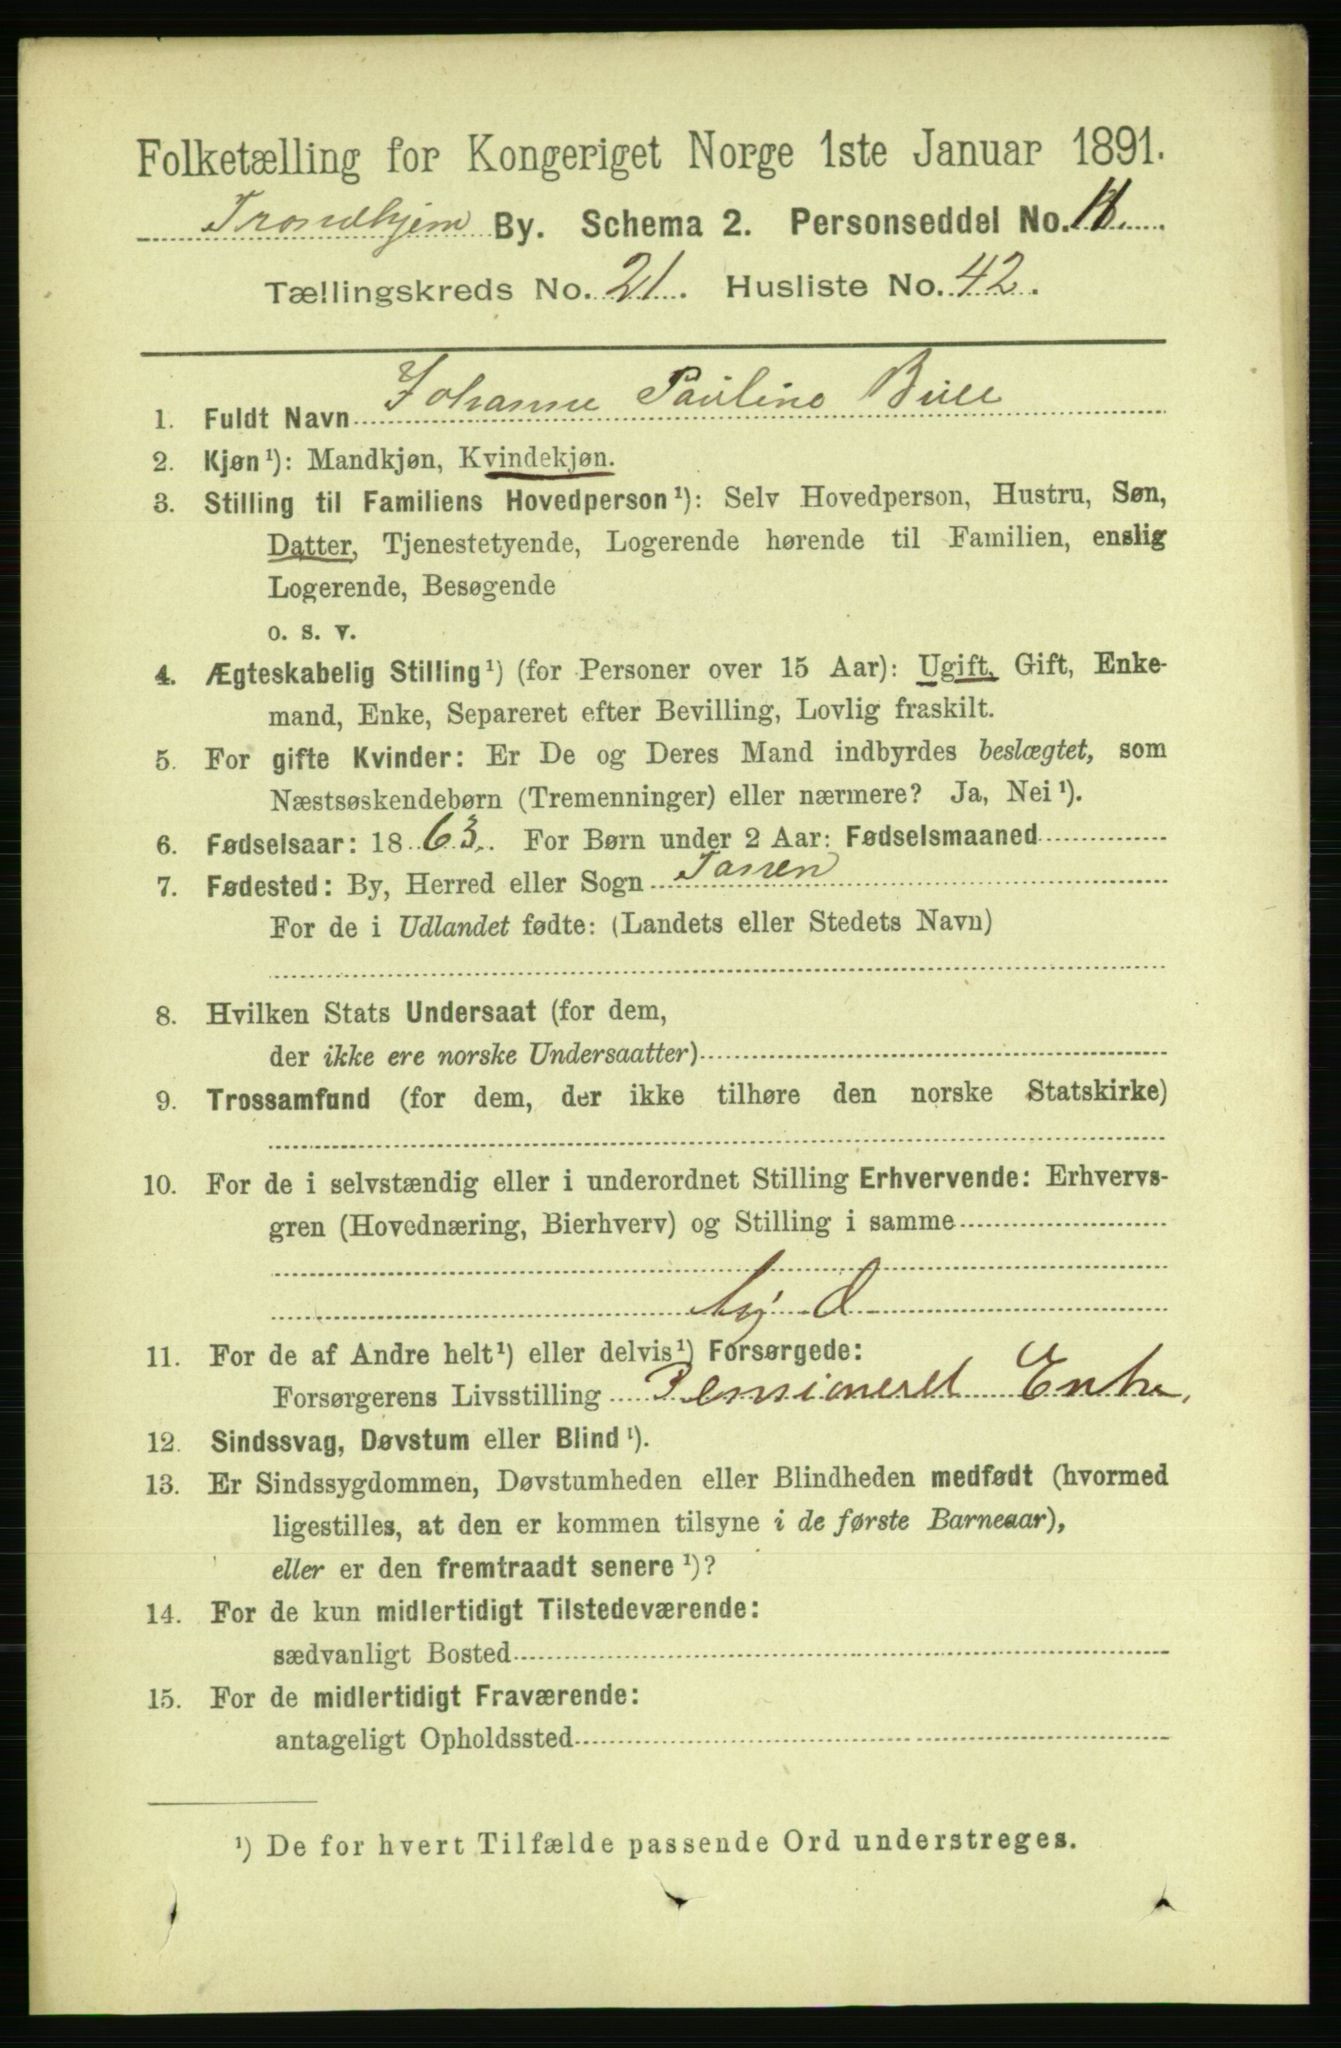 Folketælling for Kongeriget Norge 1ste Januar 1891.
Trondhjem By. Schema 2. Personseddel No.
Tællingskreds No. 21. Husliste No. 42.
1. Fuldt Navn Johanne Pauline Bull
2. Kjøn ¹): Mandkjøn, Kvindekjøn.
3. Stilling til Familiens Hovedperson ¹): Selv Hovedperson, Hustru, Søn,
Datter, Tjenestetyende, Logerende hørende til Familien, enslig
Logerende, Besøgende
o. s. v.
4. Ægteskabelig Stilling ¹) (for Personer over 15 Aar): Ugift, Gift, Enke-
mand, Enke, Separeret efter Bevilling, Lovlig fraskilt.
5. For gifte Kvinder: Er De og Deres Mand indbyrdes beslægtet, som
Næstsøskendebørn (Tremenninger) eller nærmere? Ja, Nei ¹).
6. Fødselsaar: 1863. For Børn under 2 Aar: Fødselsmaaned
7. Fødested: By, Herred eller Sogn
For de i Udlandet fødte: (Landets eller Stedets Navn)
8. Hvilken Stats Undersaat (for dem,
der ikke ere norske Undersaatter)
9. Trossamfund (for dem, der ikke tilhøre den norske Statskirke)
10. For de i selvstændig eller i underordnet Stilling Erhvervende: Erhvervs-
gren (Hovednæring, Bierhverv) og Stilling i samme
11. For de af Andre helt ¹) eller delvis ¹) Forsørgede:
Forsørgerens Livsstilling Pensioneret Enke.
12. Sindssvag, Døvstum eller Blind ¹).
13. Er Sindssygdommen, Døvstumheden eller Blindheden medfødt (hvormed
ligestilles, at den er kommen tilsyne i de første Barneaar),
eller er den fremtraadt senere ¹)?
14. For de kun midlertidigt Tilstedeværende:
sædvanligt Bosted
15. For de midlertidigt Fraværende:
antageligt Opholdssted
¹) De for hvert Tilfælde passende Ord understreges.